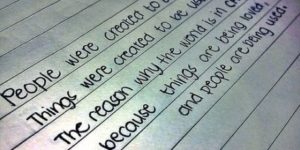 People were created to b
Things were created to be us
The reason why the world is in c
because things are being loved,
and people are being used.